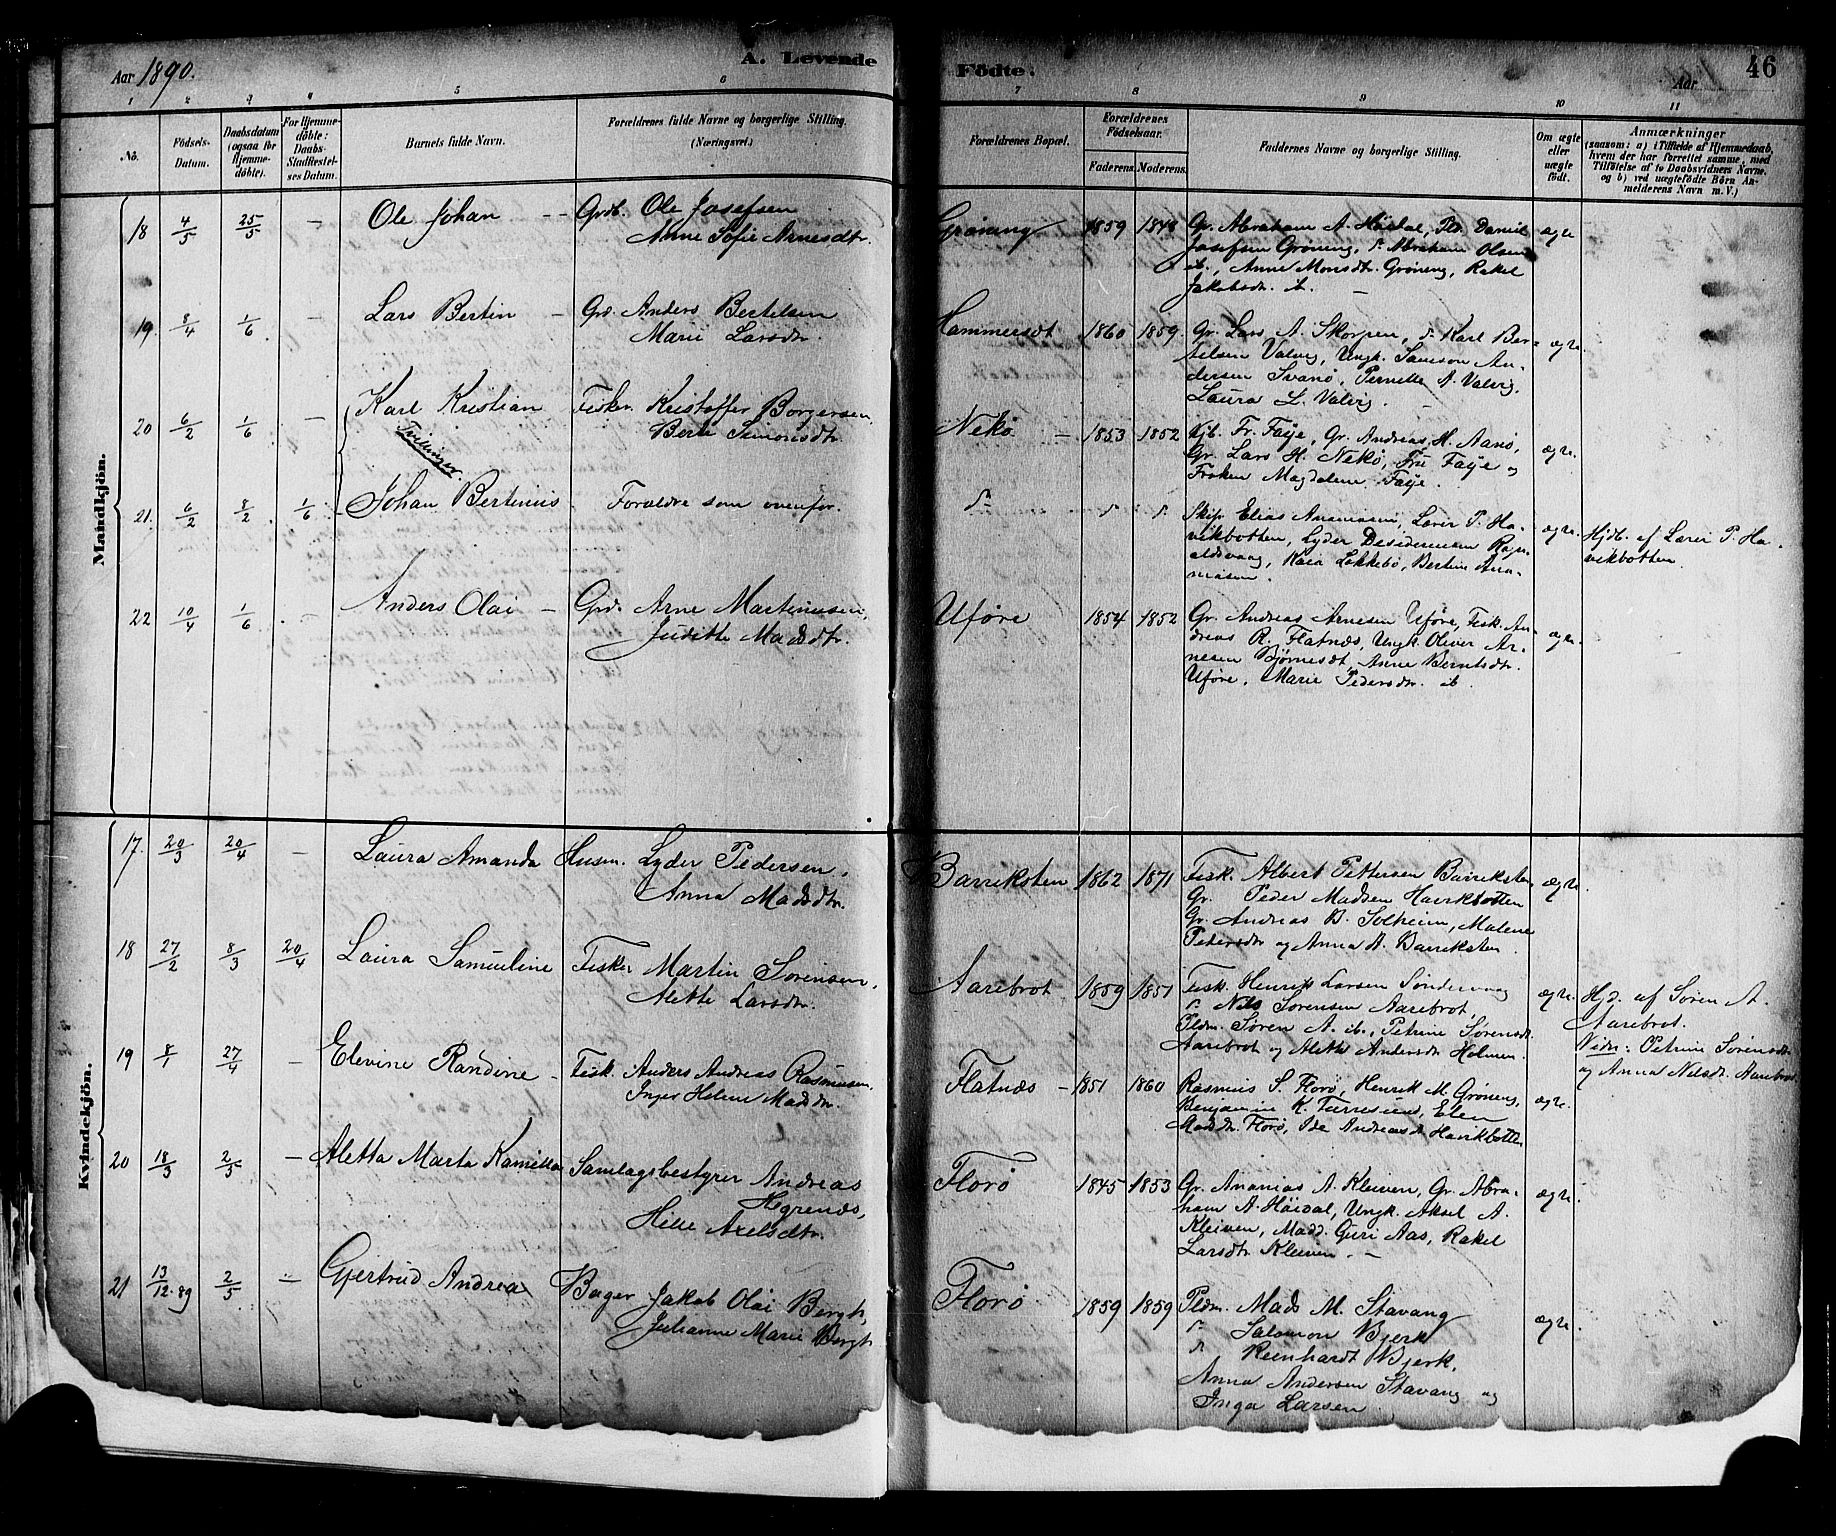 Aar 1890.
A. Levende
Födte.
Aar
46
1 2 3 4 5 6 7 8 9 10 11
No.
Födsels-
Datum.
Daabsdatum
(ogsaa for
Hjemme-
döbte).
For Hjemme-
döbte:
Daabs-
Stadfæstel-
ses Datum.
Barnets fulde Navn.
Forældrenes fulde Navne og borgerlige Stilling.
(Næringsvei.)
Forældrenes Bopæl.
Forældrenes
Födselsaar.
Faderens. Moderens.
Faddernes Navne og borgerlige Stilling.
Om ægte
eller
uægte
født.
Anmærkninger
(saasom: a) i Tilfælde af Hjemmedaab,
hvem der har forrettet samme, med
Tilföielse af to Daabsvidners Navne.
og b) ved uægtefödte Börn An-
melderens Navn m. V.)
Mandkjön.
18 4/5 25/5 — Ole Johan — Grdb. Ole Josefsen
Anne Sofie Arnesdtr.
Grøning 1859 1848 Gr. Abraham A. Høidal, Pld. Daniel ægte
Josefsen Grøning, do Abraham Olsen
ib., Anne Monsdtr. Grøning, Rakel
Jakobsdr. ib. —
19. 8/4 1/6 — Lars Bertin — Grd. Anders Bertelsen
Marie Larsdtr.
Hammersdt 1860 1859 Gr. Lars A. Skorpen, do Karl Ber- ægte.
telsen Valvig, Ungk. Samson An-
dersen Svanø, Pernille A. Valvig,
Laura L. Valvig. —
20 6/2 1/6 — Karl Kristian Fisker Kristoffer Borgersen,
Tvillinger.
Berte Simonsdtr.
Nekø — 1853 1852 Kjb. Fr. Faye, Gr. Andreas H. Aanø, ægte.
Gr. Lars H. Nekø, Fru Faye og
Frøken Magdalene Faye.
21. 6/2 8/2 1/6 Johan Bertinus Forældre som ovenfor.
do do do Skipr Elias Ananiasen, Lærer P. Ha- ægte.
vikbotten, Lyder Desideriusen Rogn-
aldsvaag, Kaia Løkkebø, Bertine Ana-
niasen.
Hjdb. af Lærer P. Ha-
vikbotten.
22 10/4 1/6 — Anders Olai — Grd. Arne Martinusen,
Juditte Madsdtr.
Uføre 1854 1852 Gr. Andreas Arnesen Uføre, Fisk. An- ægte.
dreas R. Flatnæs, Ungk. Oliver Ar-
nesen Bjørnesdt, Anne Berntsdtr.
Uføre, Marie Pedersdtr. ib.
Kvindekjön.
17. 20/3 20/4 — Laura Amanda Husm. Lyder Pedersen,
Anna Madsdtr.
Barrieksten 1862 1871 Fisk. Albert Pettersen Barrieksten ægte.
Gr. Peder Madsen Havikbotten
Gr. Andreas B. Solheim, Malene
Pedersdtr og Anna A. Barrieksten
18 27/2 8/3 20/4 Laura Samueline Fisker Martin Sørensen,
Alette Larsdtr.
Aarebrot 1859 1851 Fisk. Henrik Larsen Søndervaag ægte.
do Nils Sørensen Aarebrot,
Pldm. Søren A. ib., Petrine Sørensdt.
Aarebrot og Alette Andersdtr Holmen.
Hjd. af Søren A.
Aarebrot.
Vidn: Petrine Sørensdtr
og Anna Nilsdt. Aarebrot
19 8/1 27/4 — Elevine Randine — Fisk. Anders Andreas Rasmusen,
Inger Helene Madsdtr.
Flatnæs — 1851 1860 Rasmus S. Florø, Henrik M. Grøning, ægte.
Benjamin K. Furresund, Elen
Madsdtr. Florø, Ida Andreasdt Havikbotten
20 18/3 2/5 — Aletta Marta Kamilla Samlagsbestyrer Andreas
Hgrenæs,
Hille Axelsdtr.
Florø 1845 1853 Gr. Ananias A. Kleiven, Gr. Abra- ægte.
ham A. Høidal, Ungk. Aksel A.
Kleiven, Madd. Guri Aas, Rakel
Larsdtr Kleiven. —
21 13/12.89 2/5 — Gjertrud Andrea Bager Jakob Olai Bergh,
Julianne Marie Bergh
Florø 1859 1859 Pldm. Mads M. Stavang ægte.
do Salomon Bjerk
do Reinhardt Bjerk,
Anna Andersen Stavang og
Inga Larsen.